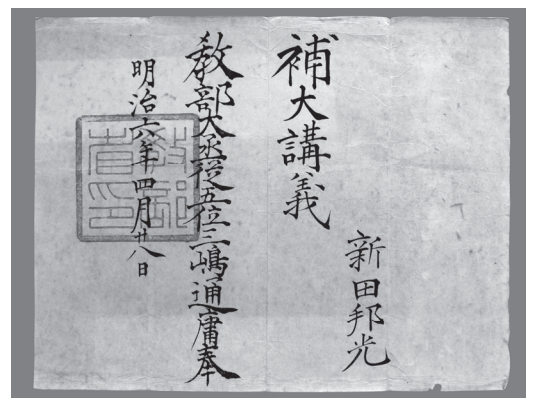 新田邦光
補大講義
教部大丞従五位三嶋通庸奉
明治六年四月廿八日
教部省印